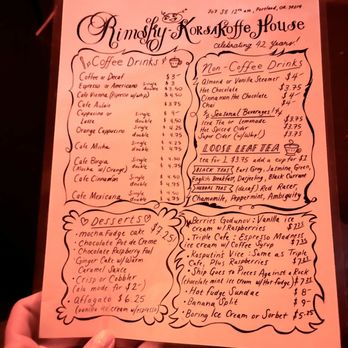 Rimsky-KorsaKoffe House
Portland, OR
celebrating 42 years!
Coffee Drinks
Coffee or Decaf $3
Espresso or Americano Single double
Cafe Vienna
Cafe Aulait $3.75
Cappuccino or Single
Latte double
Orange Cappuccino Single double
Cafe Mocha Single double
Cafe Borgia Single
(Mocha w/ Orange) double
Cafe Cinnamon Single double
Cafe Mexicana Single double
Non-Coffee Drinks
Almond or Vanilla Steamer $4
Hot Chocolate
Cinnamon Hot Chocolate
Chai
Seasonal Beverages
Iced Tea or Lemonade
Hot Spiced Cider $3.75
Super Cider
LOOSE LEAF TEA
tea for 1 $3.75 add a cup for $1
BLACK TEAS Earl Grey, Jasmine Green,
English Breakfast, Darjeeling, Black Currant
HERBAL TEAS (decaf) Red Racer,
Chamomile, Peppermint, Ambiguity
Desserts
$7.25
• mocha fudge cake
• Chocolate Pot de Creme
• Chocolate Raspberry Fool
• Ginger Cake w/Warm
Caramel Sauce
• Crisp or Cobbler
(ala mode for $2-)
• Affogato $6.25
(vanilla ice cream w/espresso)
• Berries Godunov: Vanilla ice
cream w/Raspberries
• Triple Cafe: Espresso Madness
ice cream w/ Coffee Syrup
• Rasputin's Vice: Same as Triple
Cafe, Plus Raspberries
• Ship Goes to Pieces Against a Rock
(chocolate mint ice cream w/Hot Fudge)
• Hot Fudge Sundae $8-
• Banana Split $9-
• Boring Ice Cream or Sorbet $5.25